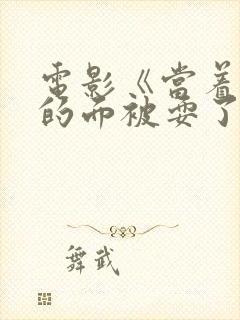 電影《當着
的面被耍了
舞武